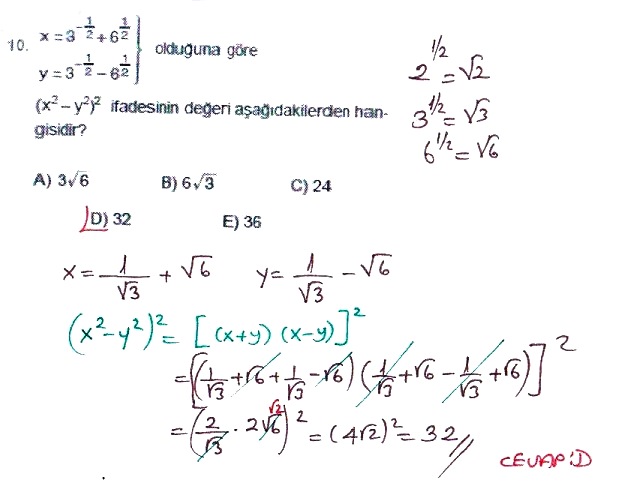 10. x = 3^{-1/2} + 6^{1/2}
y = 3^{-1/2} - 6^{1/2} } olduğuna göre
(x² – y²)² ifadesinin değeri aşağıdakilerden han-
gisidir?
A) 3√6 B) 6√3 C) 24
D) 32 E) 36
2^{1/2} = √2
3^{1/2} = √3
6^{1/2} = √6
x = 1/√3 + √6 y = 1/√3 - √6
(x² - y²)² = [(x+y) (x-y)]²
= [(1/√3 + √6 + 1/√3 - √6) (1/√3 + √6 - 1/√3 + √6)]²
= (2/√3 · 2√6 √2)² = (4√2)² = 32 //
CEVAP : D